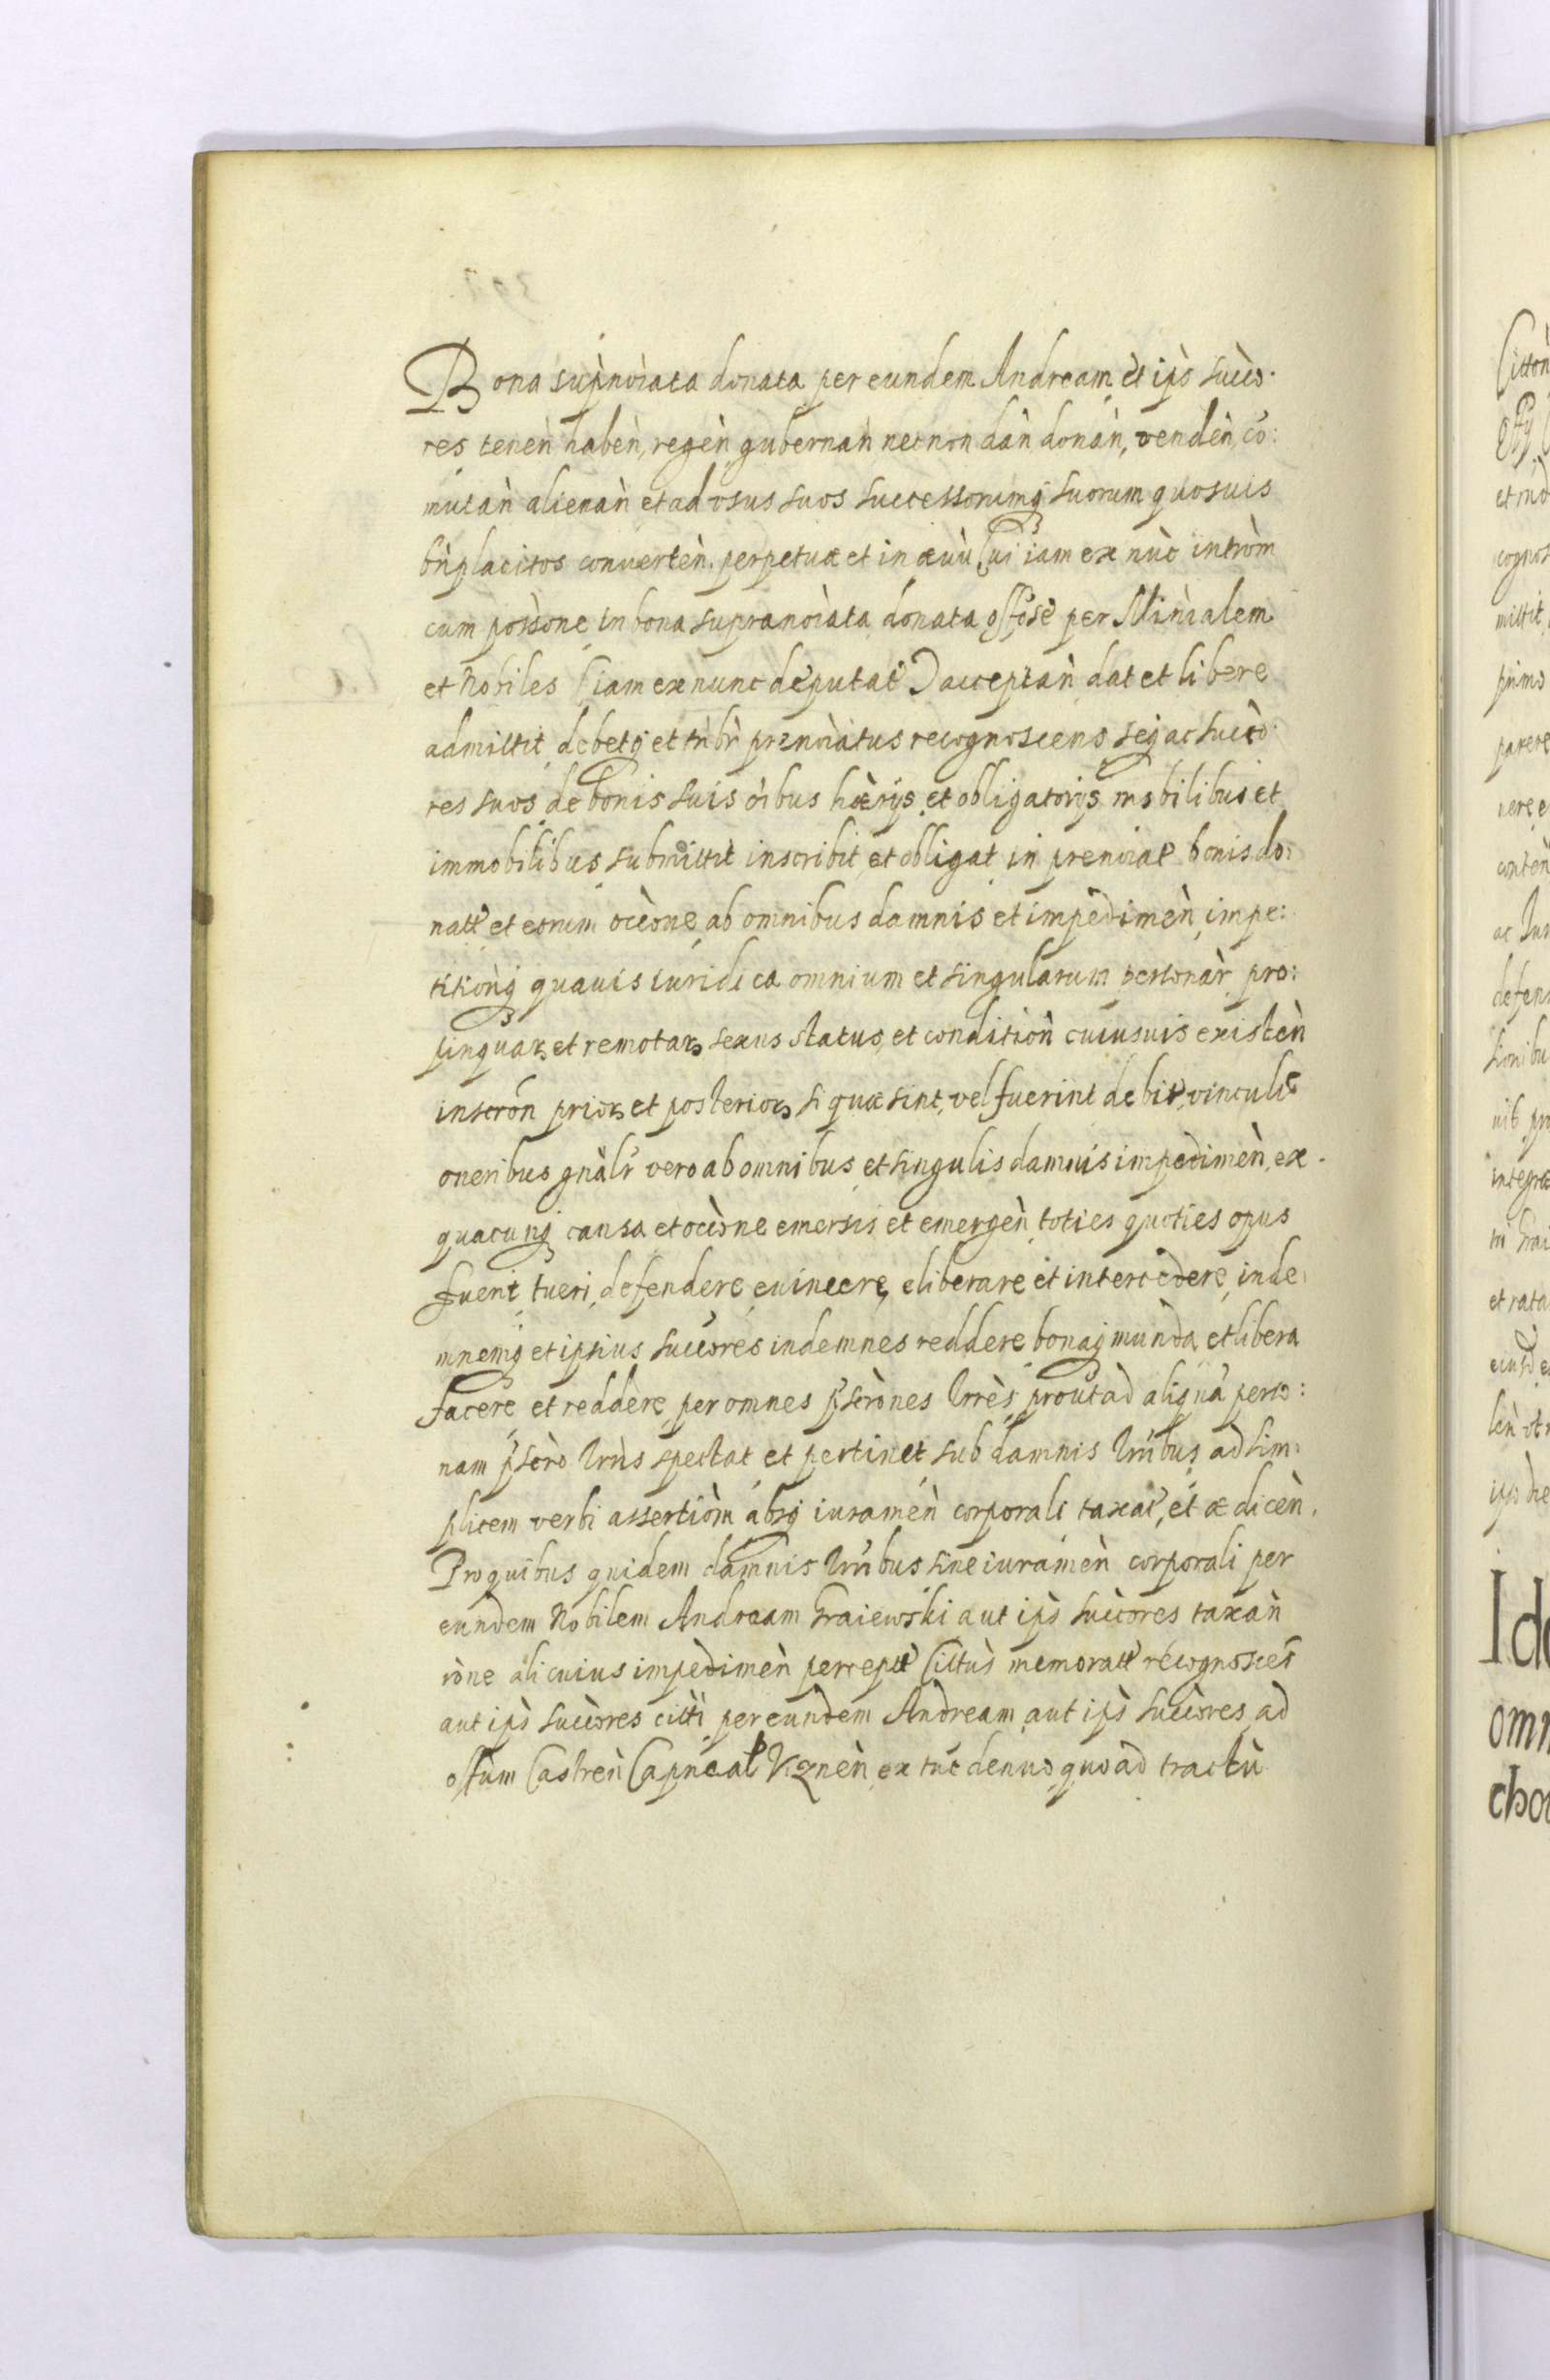 Bona supnoiata donata per eundem Andream et ips succo:
res tenen haben, regen gubernan necnon dan donan, venden, co:
mutan alienan et ad vsus suos successorumq suorum quosuis
bnplacitos conuerten. perpetuæ et in æuu Cui iam ex nuc introm
cum possone in bona supranoiata donata offose per Minialem
et Nobiles (iam ex nunc deputat) acceptan dat et libere
admittit, debetq et tnbr prænoiatus recognoscens seq ac succo:
res suos de bonis suis oibus hærijs et obligatorijs mobilibus et
immobilibus submittit inscribit et obligat in prenoiat bonis do:
natt et eorum occone ab omnibus damnis et impedimen, impe:
titionq quauis iuridica omnium et singularum personar pro:
pinquar et remotar sexus status et condition cuiusuis existen
inscron prior et posterior si quæ sint, vel fuerint debit, vincul
oneribus gnalr vero ab omnibus et singulis damnis impedimen, ex
quacunq causa et occone emersis et emergen toties quoties opus
fuerit tueri defendere euincere eliberare et intercedere, inde
mnemq et ipsius succores indemnes reddere bonaq munda et libera
facere et reddere per omnes pscrones trres prout ad aliqua perso:
nam pscro trris spectat et pertinet sub damnis trribus ad sim:
plicem verbi assertiom absq iuramen corporali taxat, et ædicen.
Pro quibus quidem damnis trribus sine iuramen corporali per
eundem Nobilem Andream Graiewski aut ips succores taxan
rone alicuius impedimen percept Cittus memoratt recognoscet
aut ips succores citti per eundem Andream aut ips succores ad
offum Castren Capneal Viznen ex tuc denuo quoad tractu